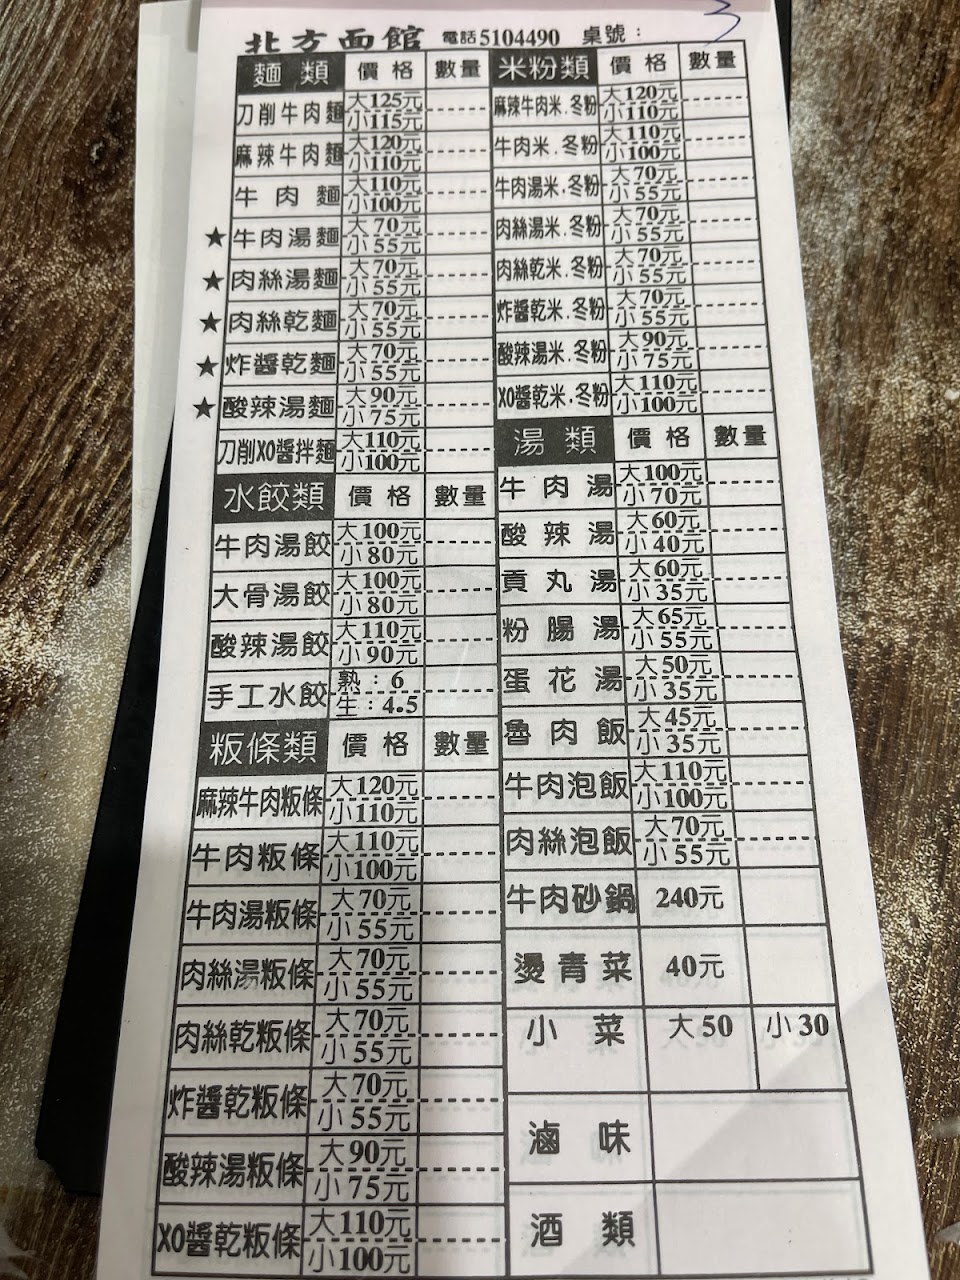 3
北方面館 電話5104490 桌號：
麵類 價格 數量
刀削牛肉麵 大125元 小115元
麻辣牛肉麵 大120元 小110元
牛肉麵 大110元 小100元
★牛肉湯麵 大70元 小55元
★肉絲湯麵 大70元 小55元
★肉絲乾麵 大70元 小55元
★炸醬乾麵 大70元 小55元
★酸辣湯麵 大90元 小75元
刀削XO醬拌麵 大110元 小100元
水餃類 價格 數量
牛肉湯餃 大100元 小80元
大骨湯餃 大100元 小80元
酸辣湯餃 大110元 小90元
手工水餃 熟：6 生：4.5
粄條類 價格 數量
麻辣牛肉粄條 大120元 小110元
牛肉粄條 大110元 小100元
牛肉湯粄條 大70元 小55元
肉絲湯粄條 大70元 小55元
肉絲乾粄條 大70元 小55元
炸醬乾粄條 大70元 小55元
酸辣湯粄條 大90元 小75元
XO醬乾粄條 大110元 小100元
米粉類 價格 數量
麻辣牛肉米.冬粉 大120元 小110元
牛肉米.冬粉 大110元 小100元
牛肉湯米.冬粉 大70元 小55元
肉絲湯米.冬粉 大70元 小55元
肉絲乾米.冬粉 大70元 小55元
炸醬乾米.冬粉 大70元 小55元
酸辣湯米.冬粉 大90元 小75元
XO醬乾米.冬粉 大110元 小100元
湯類 價格 數量
牛肉湯 大100元 小70元
酸辣湯 大60元 小40元
貢丸湯 大60元 小35元
粉腸湯 大65元 小55元
蛋花湯 大50元 小35元
魯肉飯 大45元 小35元
牛肉泡飯 大110元 小100元
肉絲泡飯 大70元 小55元
牛肉砂鍋 240元
燙青菜 40元
小菜 大50 小30
滷味
酒類